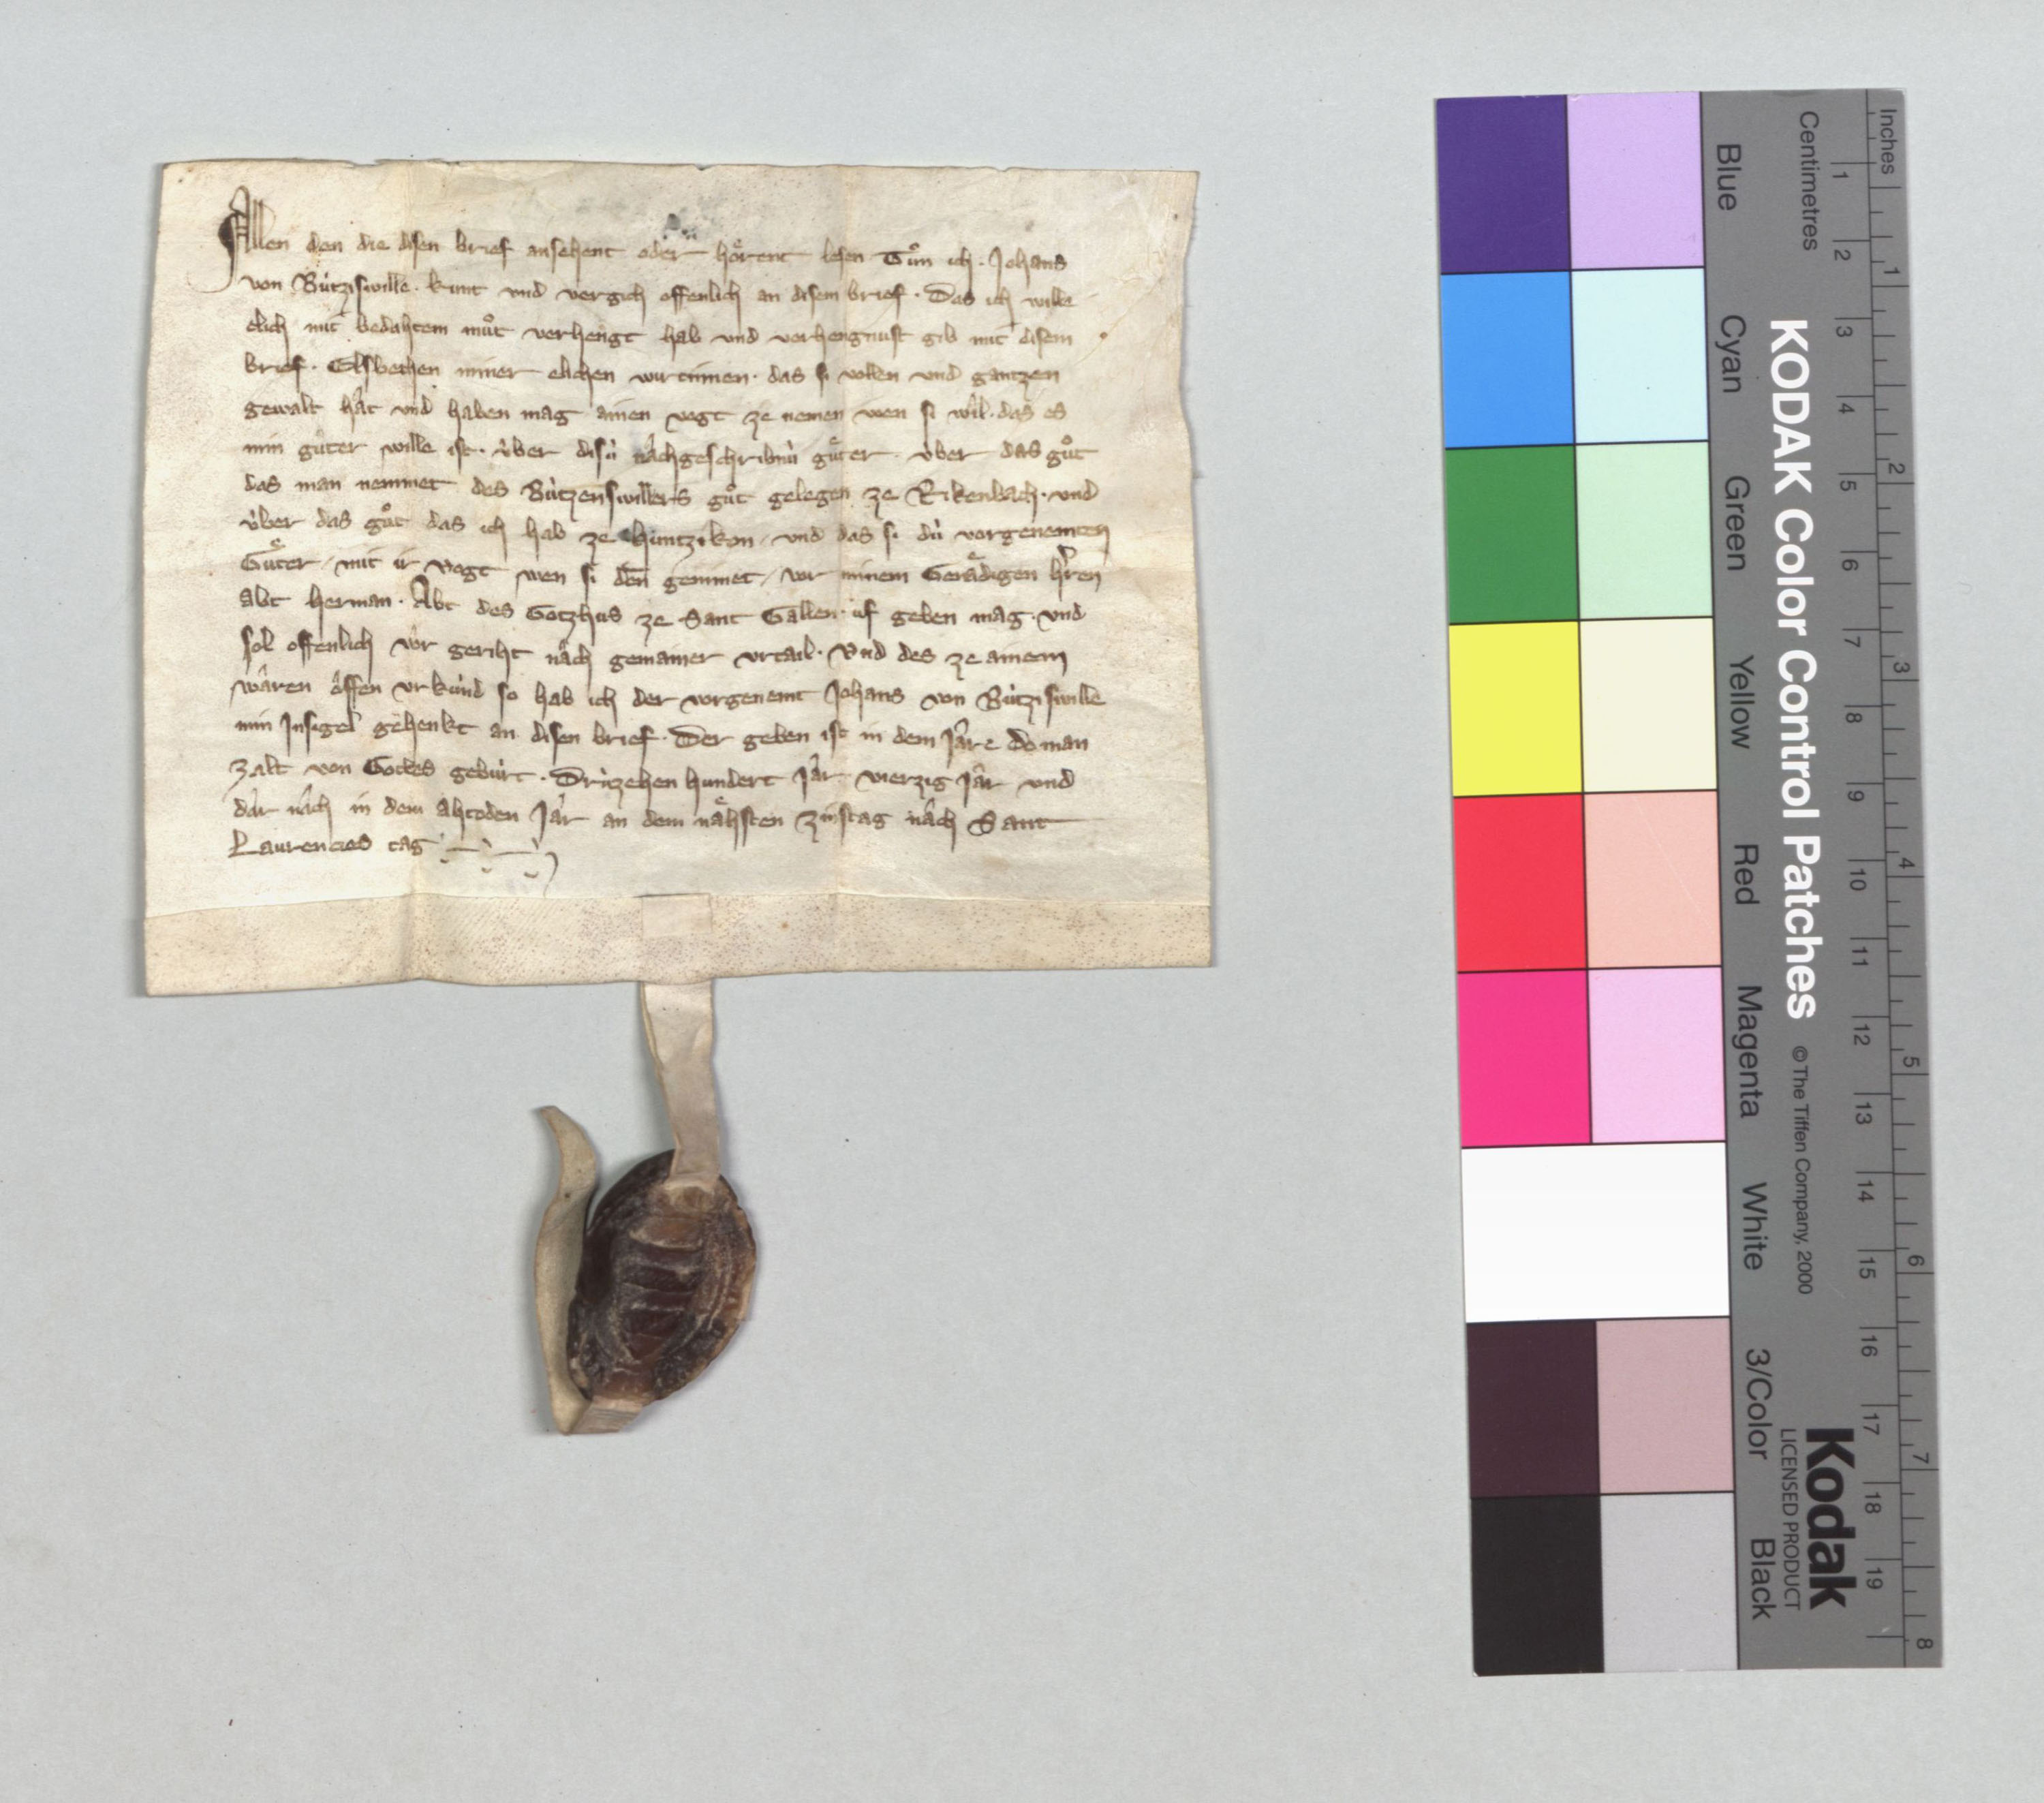 Allen den die disen brief ansehent oder hoͤrent lesen Tuͦn ich. Johans
von Bùtziswille. kunt vnd vergich offenlich an disem brief. Das ich wille
clich mit bedahtem muͦt verhengt hab vnd verhengnust gib mit disem
brief. Elsbethen miner elichen wirtinnen. das si vollen vnd gantzen
gewalt hât vnd haben mag ainen vogt ze nemen wen si wil. das es
min guͦter wille ist. ùber disù nâchgeschribnù guͤter. ùber das guͦt
das man nemmet des Bùtzenswillers guͦt gelegen ze Rikenbach. vnd
ùber das guͦt das ich hab ze Huntzikon / vnd das si dù vorgenemten
Guͤter / mit ir vogt wen si den genimet / vor minem Genaͤdigen hren
abt Herman. Abt des Gotzhus ze Sant Gallen. uf geben mag. vnd
sol offenlich vor geriht nâch gemainer vrtail. Vnd des ze ainem
wâren offen vrkùnd so hab ich der vorgenemt Johans von Bùtziswille
min Insigel gehenkt an disen brief. Der geben ist in dem Jâre do man
zalt von Gottes gebùrt. Drùzehen hundert Jâr vierzig Jâr vnd
dar nâch in dem ahtoden Jâr an dem naͤhsten zinstag nâch Sant
Laurencies tag
KODAK Color Control Patches © The Tiffen Company, 2000
Kodak
LICENSED PRODUCT
Blue
Cyan
Green
Yellow
Red
Magenta
White
3/Color
Black
Centimetres
1 2 3 4 5 6 7 8 9 10 11 12 13 14 15 16 17 18 19
Inches
1 2 3 4 5 6 7 8